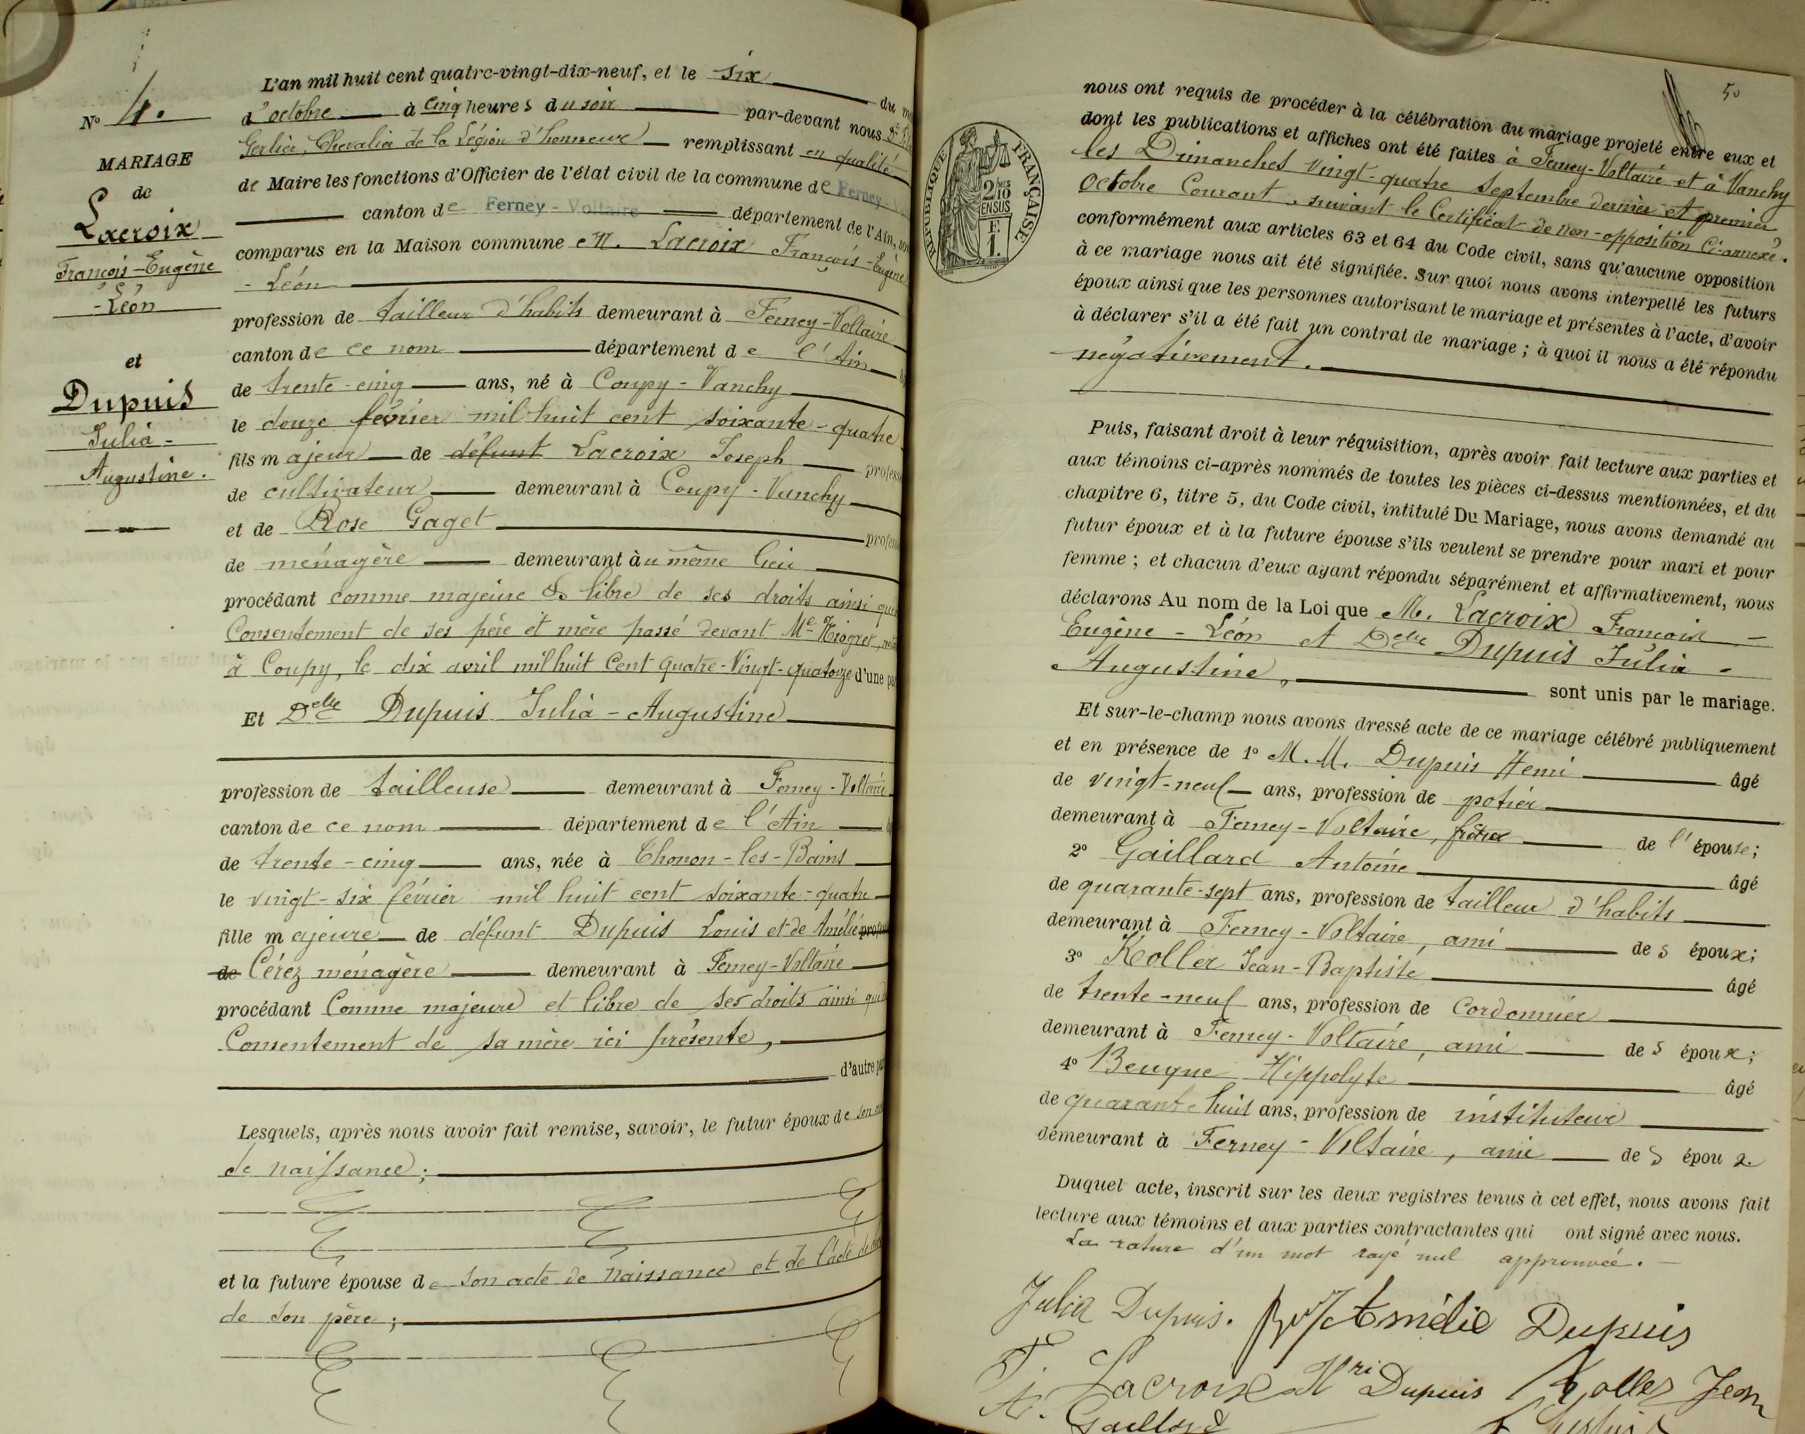 L'an mil huit cent quatre-vingt-dix-neuf, et le six du
d'octobre à cinq heures du soir par-devant nous
Gerlier, Chevalier de la Légion d'honneur remplissant en qualité
de Maire les fonctions d'Officier de l'état civil de la commune de Ferney-
canton de Ferney-Voltaire département de l'Ain,
comparus en la Maison commune M. Lacroix François-Eugène
-Léon
profession de tailleur d'habits demeurant à Ferney-Voltaire
canton de ce nom département de l'Ain
de trente-cinq ans, né à Coupy-Vanchy
le douze février mil huit cent soixante-quatre
fils majeur de défunt Lacroix Joseph profess
de cultivateur demeurant à Coupy-Vanchy
et de Rose Gaget profess
de ménagère demeurant au même lieu
procédant comme majeur & libre de ses droits ainsi que
Consentement de ses père et mère passé devant Me
à Coupy, le dix avril mil huit cent quatre-vingt-quatorze d'une pa
Et Delle Dupuis Julia-Augustine
profession de tailleuse demeurant à Ferney-Voltaire
canton de ce nom département de l'Ain
de trente-cinq ans, née à Thonon-les-Bains
le vingt-six février mil huit cent soixante-quatre
fille majeure de défunt Dupuis Louis et de Amélie profes
de Cérez ménagère demeurant à Ferney-Voltaire
procédant comme majeure et libre de ses droits ainsi que
Consentement de sa mère ici présente,
d'autre par
Lesquels, après nous avoir fait remise, savoir, le futur époux de son
de naissance;
et la future épouse de son acte de naissance et de l'acte de
de son père;
No 4.
MARIAGE
de
Lacroix
François-Eugène
-Léon
et
Dupuis
Julia-
Augustine.
50
RÉPUBLIQUE FRANÇAISE
2/10 EN SUS
F
1.
nous ont requis de procéder à la célébration du mariage projeté entre eux et
dont les publications et affiches ont été faites à Ferney-Voltaire et à Vanchy
les Dimanches vingt-quatre septembre dernier et premier
octobre Courant, suivant le Certificat de non-opposition Ci-annexé.
conformément aux articles 63 et 64 du Code civil, sans qu'aucune opposition
à ce mariage nous ait été signifiée. Sur quoi nous avons interpellé les futurs
époux ainsi que les personnes autorisant le mariage et présentes à l'acte, d'avoir
à déclarer s'il a été fait un contrat de mariage; à quoi il nous a été répondu
négativement.
Puis, faisant droit à leur réquisition, après avoir fait lecture aux parties et
aux témoins ci-après nommés de toutes les pièces ci-dessus mentionnées, et du
chapitre 6, titre 5, du Code civil, intitulé Du Mariage, nous avons demandé au
futur époux et à la future épouse s'ils veulent se prendre pour mari et pour
femme; et chacun d'eux ayant répondu séparément et affirmativement, nous
déclarons Au nom de la Loi que M. Lacroix François-
Eugène-Léon et Delle Dupuis Julia-
Augustine, sont unis par le mariage.
Et sur-le-champ nous avons dressé acte de ce mariage célébré publiquement
et en présence de 1° M.M. Dupuis Henri âgé
de vingt-neuf ans, profession de potier
demeurant à Ferney-Voltaire, frère de l'épouse;
2° Gaillard Antoine âgé
de quarante-sept ans, profession de tailleur d'habits
demeurant à Ferney-Voltaire, ami des époux;
3° Koller Jean-Baptiste âgé
de trente-neuf ans, profession de Cordonnier
demeurant à Ferney-Voltaire, ami des époux;
4° Hippolyte âgé
de quarante huit ans, profession de instituteur
demeurant à Ferney-Voltaire, ami des époux.
Duquel acte, inscrit sur les deux registres tenus à cet effet, nous avons fait
lecture aux témoins et aux parties contractantes qui ont signé avec nous.
La rature d'un mot rayé nul approuvée.
Julia Dupuis. Amélie Dupuis
F. Lacroix Hri Dupuis Koller Jean
A. Gaillard